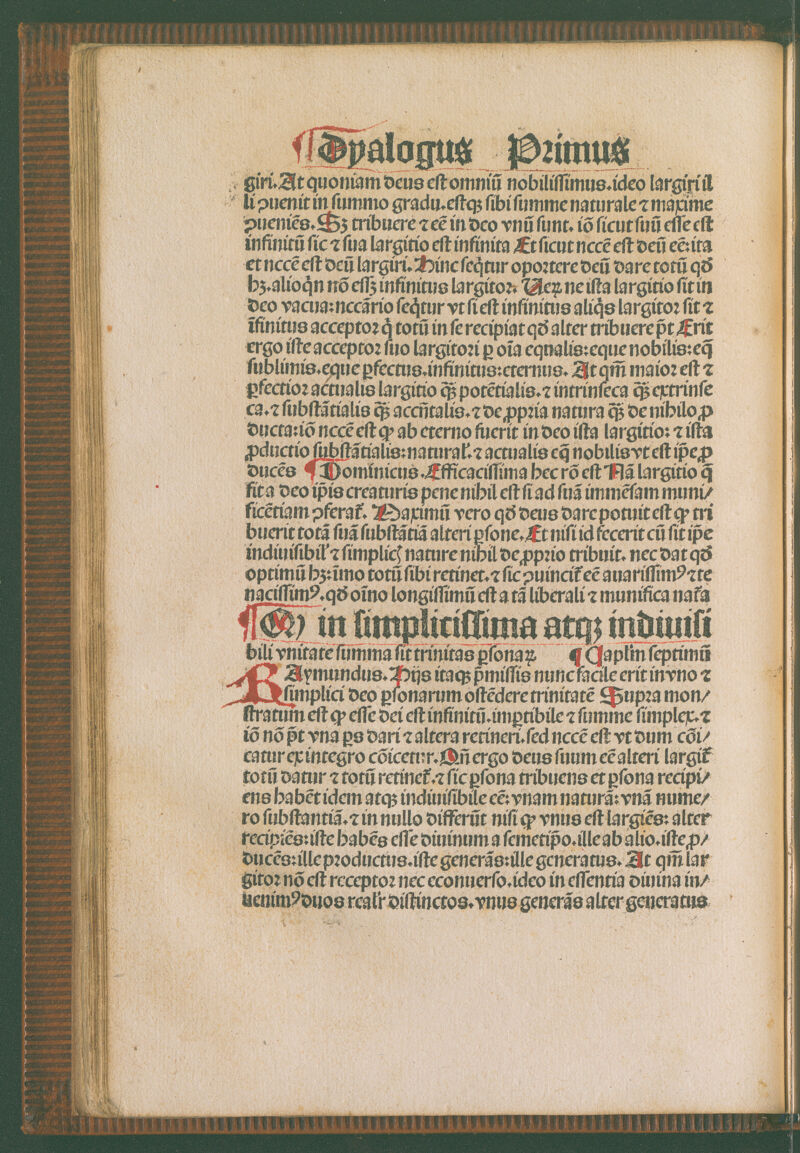 ¶ Dyalogus Primus
giri. At quoniam deus est omniū nobilissimus. ideo largiri il
li ꝯuenit in summo gradu. estqꝫ sibi summe naturale ⁊ maxime
ꝯueniēs. Sꝫ tribuere ⁊ eē in deo vnū sunt. iō sicut suū esse est
infinitū sic ⁊ sua largitio est infinita Et sicut nccē est deū eē: ita
et nccē est deū largiri. Hinc seq̇tur oportere deū dare totū qđ
hꝫ. alioq̇n nō essꝫ infinitus largitor. Veꝝ ne ista largitio sit in
deo vacua: nccārio seq̇tur vt si est infinitus aliq̇s largitor sit ⁊
īfinitus acceptor q̇ totū in se recipiat qđ alter tribuere p̄t Erit
ergo iste acceptor suo largitori ꝑ oīa equalis: eque nobilis: eq̄
sublimis. eque ꝑfectus. infinitus: eternus. At qm̄ maior est ⁊
ꝑfectior actualis largitio q̄ꝫ potētialis. ⁊ intrinseca q̄ꝫ extrinse
ca. ⁊ substātialis q̄ꝫ accn̄talis. ⁊ de ꝓpria natura q̄ꝫ de nihilo ꝓ
ducta: iō nccē est ꝙ ab eterno fuerit in deo ista largitio: ⁊ ista
ꝓductio substātialis: natural᷒. ⁊ actualis eq̄ nobilis vt est ip̄e ꝓ
ducēs ¶ Dominicus. Efficacissima hec rō est Nā largitio q̄
fit a deo ip̄is creaturis pene nihil est si ad suā immēsam muni⸗
ficētiam ꝯferat᷒. Maximū vero qđ deus dare potuit est ꝙ tri
buerit totā suā substātiā alteri ꝑsone. Et nisi id fecerit cū sit ip̄e
indiuisibil᷒ ⁊ simplic᷒ nature nihil de ꝓprio tribuit. nec dat qđ
optimū hꝫ: īmo totū sibi retinet. ⁊ sic ꝯuincit᷒ eē auarissimꝰ ⁊ te
nacissimꝰ. qđ oīno longissimū est a tā liberali ⁊ munifica nat᷒a
¶ Q in simplicissima atqꝫ indiuisi
bili vnitate summa sit trinitas ꝑsonaꝝ ¶ Caplm̄ septimū
RAymundus. Hijs itaqꝫ p̄missis nunc facile erit in vno ⁊
simplici deo ꝑsonarum ostēdere trinitatē Supra mon⸗
stratum est ꝙ esse dei est infinitū. imꝑtibile ⁊ summe simplex. ⁊
iō nō p̄t vna ꝑs dari ⁊ altera retineri. sed nccē est vt dum cōi⸗
catur ex integro cōicetur. Qn̄ ergo deus suum eē alteri largit᷒
totū datur ⁊ totū retinet᷒. ⁊ sic ꝑsona tribuens et ꝑsona recipi⸗
ens habēt idem atqꝫ indiuisibile eē: vnam naturā: vnā nume⸗
ro substantiā. ⁊ in nullo differūt nisi ꝙ vnus est largiēs: alter
recipiēs: iste habēs esse diuinum a semetip̄o. ille ab alio. iste ꝓ⸗
ducēs: ille productus. iste generās: ille generatus. At qm̄ lar
gitor nō est receptor nec econuerso. ideo in essentia diuina in⸗
uenimꝰ duos realr̄ distinctos. vnus generās alter generatus